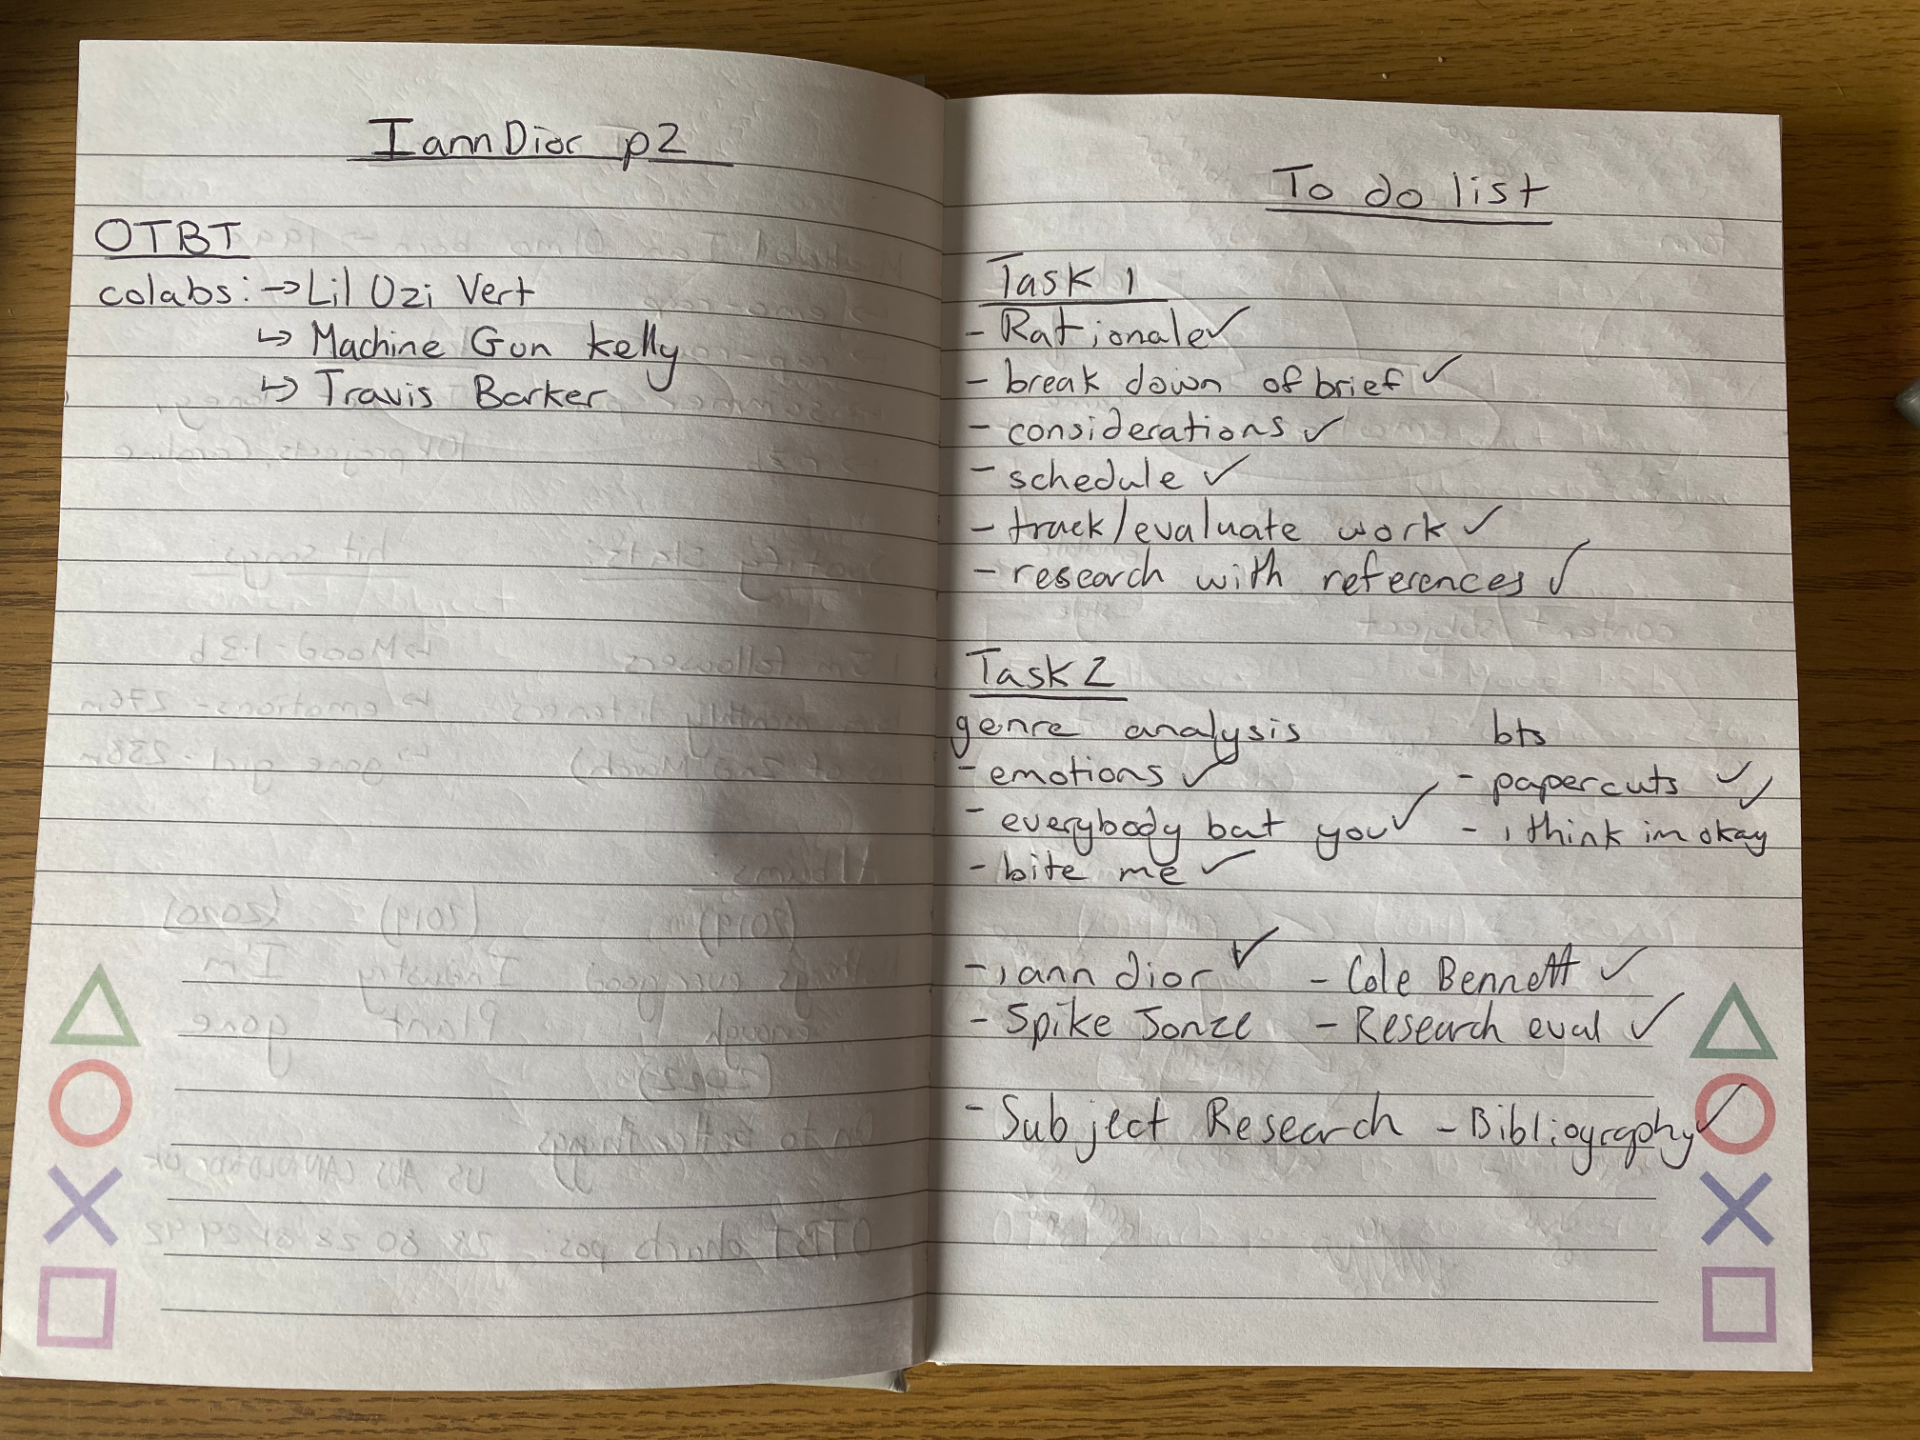 Iann Dior p2
OTBT
colabs: → Lil Uzi Vert
↳ Machine Gun kelly
↳ Travis Barker
To do list
Task 1
- Rationale ✓
- break down of brief ✓
- considerations ✓
- schedule ✓
- track/evaluate work ✓
- research with references ✓
Task 2
genre analysis bts
- emotions ✓ - papercuts ✓✓
- everybody but you ✓ - i think im okay
- bite me ✓
- iann dior ✓ - Cole Bennett ✓
- Spike Jonze - Research eval ✓
- Subject Research - Bibliography ✓